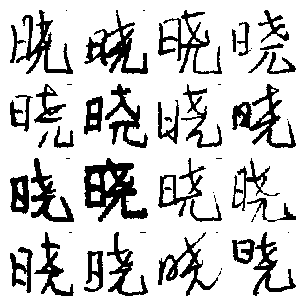 晓晓晓晓
晓晓晓晓
晓晓晓晓
晓晓晓晓